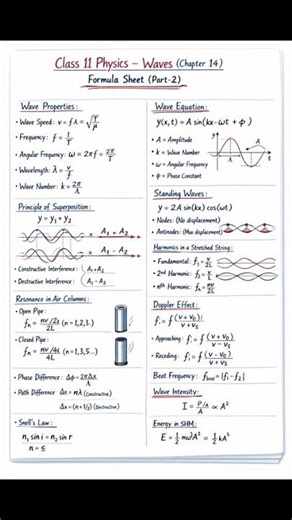 Class 11 Physics – Waves (Chapter 14)
Formula Sheet (Part-2)
Wave Properties:
• Wave Speed: v = fλ = √(T/μ)
• Frequency: f = 1/T
• Angular Frequency: ω = 2πf = 2π/T
• Wavelength: λ = v/f
• Wave Number: k = 2π/λ
Principle of Superposition:
y = y₁ + y₂
× A₁ + A₂
× A₁ − A₂
• Constructive Interference: (A₁ + A₂
• Destructive Interference: (A₁ − A₂
Resonance in Air Columns:
• Open Pipe:
(n = 1,2,3..)
• Closed Pipe:
(n = 1,3,5...)
• Phase Difference: Δφ = 2πΔx/λ
• Path Difference Δn = nλ (Constructive)
Δx = (n + 1/2) (Destructive)
• Snell's Law:
n₁ sin i = n₂ sin r
Wave Equation:
y(x,t) = A sin(kx - ωt + ϕ)
• A = Amplitude
• k = Wave Number
• ω = Angular Frequency
• ϕ = Phase Constant
A
λ
Standing Waves:
y = 2A sin(kx) cos(ωt)
• Nodes: (No displacement)
• Antinodes: (Max displacement)
Harmonics in a Stretched String:
• Fundamental: f₁ = v/2L
• 2nd Harmonic: f₂ = v/L
• nth Harmonic: fₙ = nv/2L
Doppler Effect:
• Approaching:
• Receding:
Beat Frequency: f_beat = |f₁ − f₂|
Wave Intensity:
I = P/A ∝ A²
Energy in SHM:
E = ½ mω²A² = ½ kA²